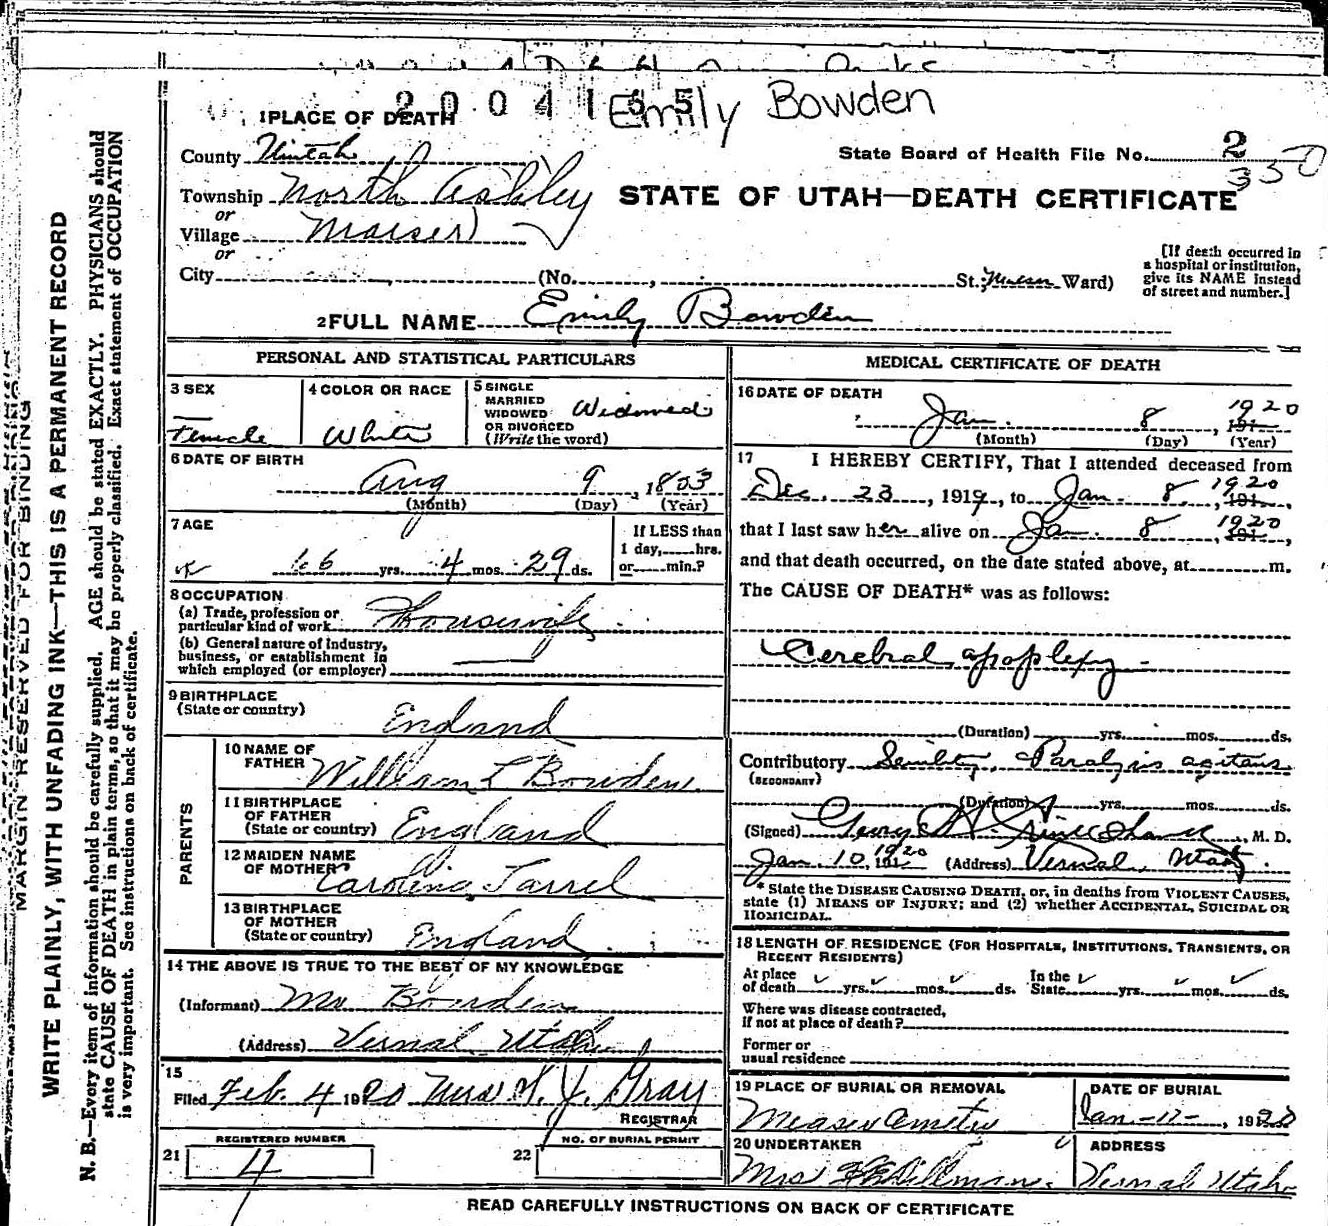 2004165
Emily Bowden
1 PLACE OF DEATH
County Uintah
State Board of Health File No. 2
350
Township North Ashley
STATE OF UTAH—DEATH CERTIFICATE
or
Village Maeser
or
City (No. , St. Ward)
[If death occurred in
a hospital or institution,
give its NAME instead
of street and number.]
2 FULL NAME Emily Bowden
PERSONAL AND STATISTICAL PARTICULARS
3 SEX
Female
4 COLOR OR RACE
White
5 SINGLE
MARRIED
WIDOWED
OR DIVORCED
(Write the word)
Widowed
6 DATE OF BIRTH
Aug 9, 1853
(Month) (Day) (Year)
7 AGE
66 yrs. 4 mos. 29 ds.
If LESS than
1 day, hrs.
or min.?
8 OCCUPATION
(a) Trade, profession or
particular kind of work Housewife
(b) General nature of industry,
business, or establishment in
which employed (or employer)
9 BIRTHPLACE
(State or country)
England
PARENTS
10 NAME OF
FATHER
William L Bowden
11 BIRTHPLACE
OF FATHER
(State or country) England
12 MAIDEN NAME
OF MOTHER
Carolina Tarrel
13 BIRTHPLACE
OF MOTHER
(State or country) England
14 THE ABOVE IS TRUE TO THE BEST OF MY KNOWLEDGE
(Informant) Mr Bowden
(Address) Vernal Utah
15
Filed Feb. 4 1920 Mrs S. J. Gray
REGISTRAR
REGISTERED NUMBER
21 4
NO. OF BURIAL PERMIT
22
MEDICAL CERTIFICATE OF DEATH
16 DATE OF DEATH
Jan. 8, 1920 191
(Month) (Day) (Year)
17 I HEREBY CERTIFY, That I attended deceased from
Dec. 23, 1919, to Jan. 8, 1920 191,
that I last saw her alive on Jan. 8, 1920 191,
and that death occurred, on the date stated above, at m.
The CAUSE OF DEATH* was as follows:
Cerebral apoplexy
(Duration) yrs. mos. ds.
Contributory Senility, Paralysis agitans
(SECONDARY)
(Duration) yrs. mos. ds.
(Signed) , M. D.
Jan. 10, 1920 191 (Address) Vernal, Utah.
* State the DISEASE CAUSING DEATH, or, in deaths from VIOLENT CAUSES,
state (1) MEANS OF INJURY; and (2) whether ACCIDENTAL, SUICIDAL OR
HOMICIDAL.
18 LENGTH OF RESIDENCE (FOR HOSPITALS, INSTITUTIONS, TRANSIENTS, OR
RECENT RESIDENTS)
At place
of death yrs. mos. ds.
In the
State yrs. mos. ds.
Where was disease contracted,
if not at place of death?
Former or
usual residence
19 PLACE OF BURIAL OR REMOVAL
Measer Cemetry
DATE OF BURIAL
Jan-12-, 1920
20 UNDERTAKER
Mrs Dillman.
ADDRESS
Vernal Utah
READ CAREFULLY INSTRUCTIONS ON BACK OF CERTIFICATE
MARGIN RESERVED FOR BINDING
WRITE PLAINLY, WITH UNFADING INK—THIS IS A PERMANENT RECORD
N. B.—Every item of information should be carefully supplied. AGE should be stated EXACTLY. PHYSICIANS should
state CAUSE OF DEATH in plain terms, so that it may be properly classified. Exact statement of OCCUPATION
is very important. See instructions on back of certificate.